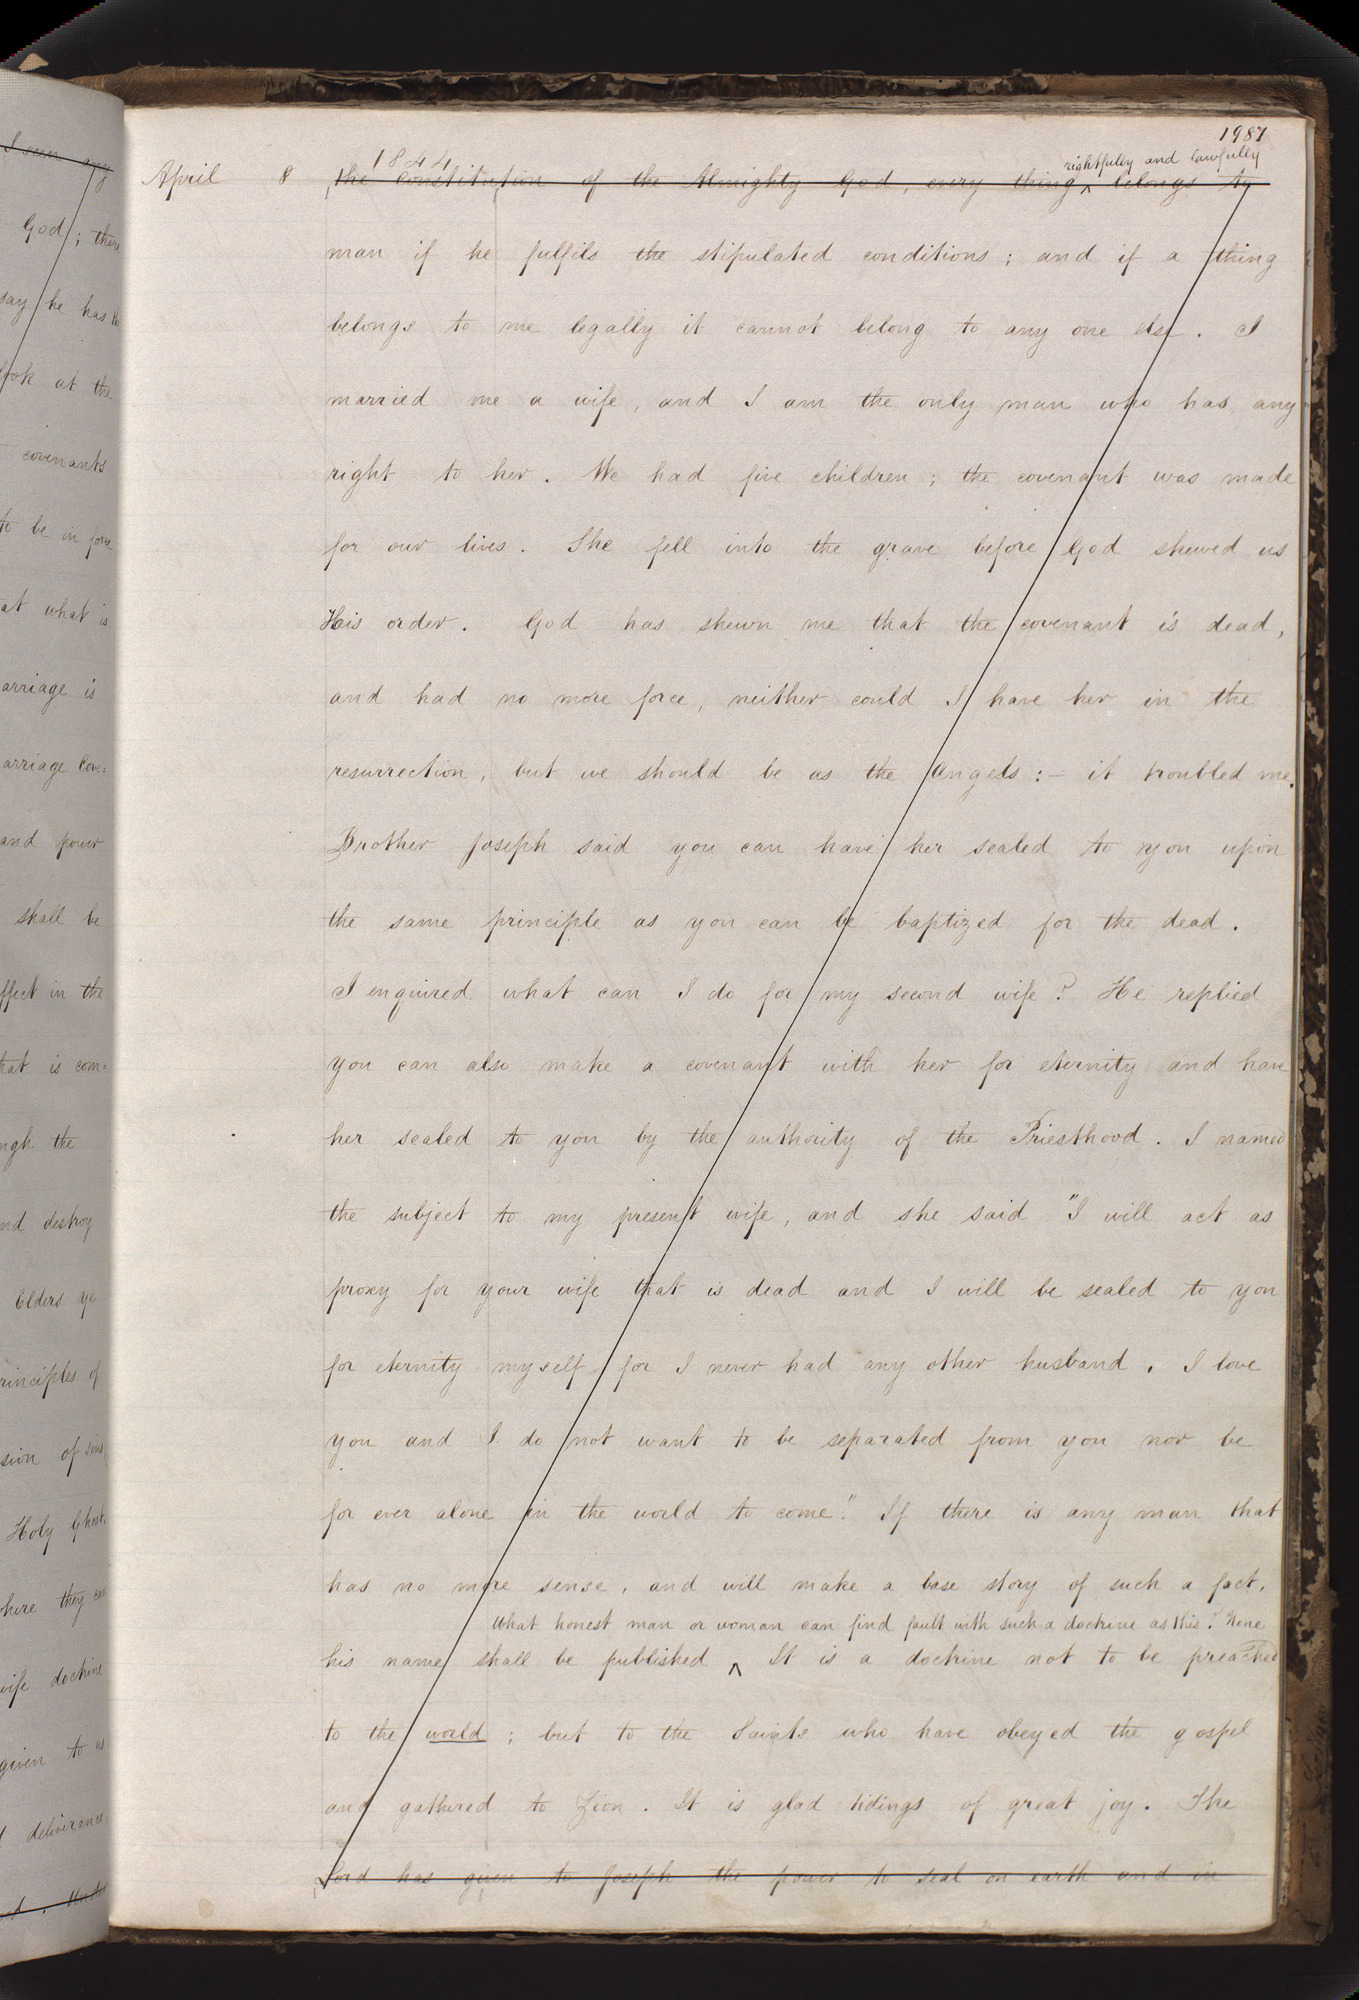 1987
1844
rightfully and lawfully
April 8 the constitution of the Almighty God, every thing ^ belongs to
man if he fulfils the stipulated conditions; and if a thing
belongs to me legally it cannot belong to any one else. I
married me a wife, and I am the only man who has any
right to her. We had five children; the covenant was made
for our lives. She fell into the grave before God shewed us
His order. God has shewn me that the covenant is dead,
and had no more force, neither could I have her in the
resurrection, but we should be as the Angels:— it troubled me.
Brother Joseph said you can have her sealed to you upon
the same principle as you can be baptized for the dead.
I enquired what can I do for my second wife? He replied
you can also make a covenant with her for eternity and have
her sealed to you by the authority of the Priesthood. I named
the subject to my present wife, and she said "I will act as
proxy for your wife that is dead and I will be sealed to you
for eternity myself for I never had any other husband. I love
you and I do not want to be separated from you nor be
for ever alone in the world to come." If there is any man that
has no more sense, and will make a base story of such a fact,
What honest man or woman can find fault with such a doctrine as this? None
his name shall be published ^ It is a doctrine not to be preached
to the world; but to the Saints who have obeyed the gospel
and gathered to Zion. It is glad tidings of great joy. The
Lord has given to Joseph the power to seal on earth and in
God; there
say he has
look at the
covenants
to be in force
at what is
arriage is
arriage Cove=
and power
shall be
ffect in the
hat is com=
ugh the
nd destroy
Elders
rinciples of
sion of sins,
Holy Ghost,
where they can
wife doctrine
given to us
deliverance